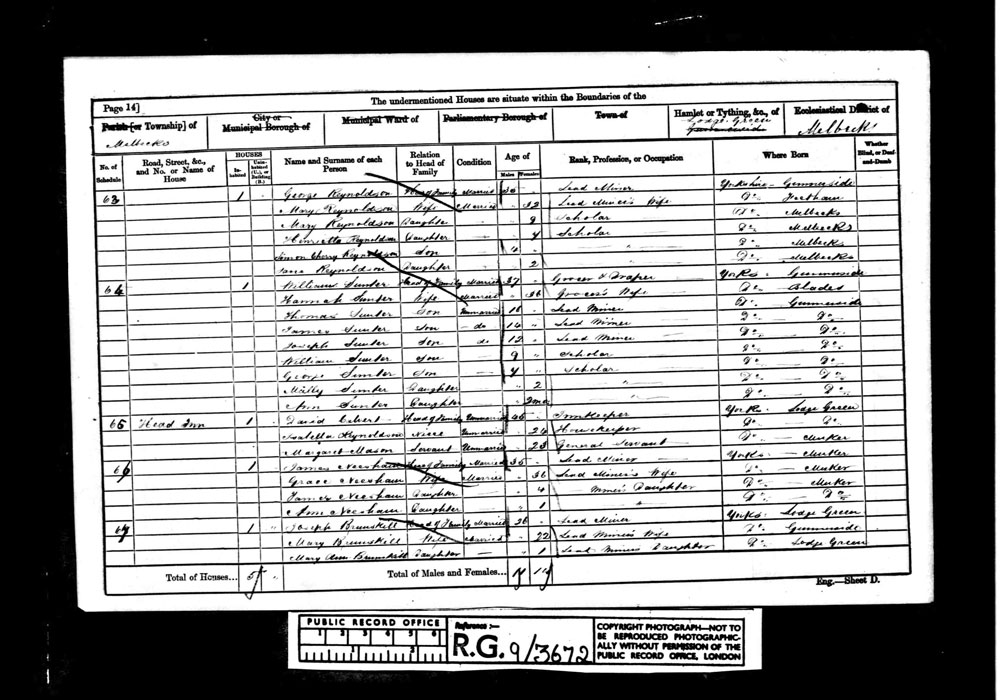 Page 14]
The undermentioned Houses are situate within the Boundaries of the
Parish [or Township] of
City or Municipal Borough of
Municipal Ward of
Parliamentary Borough of
Town of
Hamlet or Tything, &c., of
Ecclesiastical District of
Melbecks
Lodge Green
Melbecks
No. of Schedule
Road, Street, &c., and No. or Name of House
HOUSES
Inhabited
Uninhabited (U.), or Building (B.)
Name and Surname of each Person
Relation to Head of Family
Condition
Age of
Males
Females
Rank, Profession, or Occupation
Where Born
Whether Blind, or Deaf-and-Dumb
63 1 George Reynoldson Head of Family Married 35 Lead Miner Yorkshire Gunnerside
Mary Reynoldson Wife Married 32 Lead Miner's Wife Do.
Mary Reynoldson Daughter 9 Scholar Do. Melbecks
Henrietta Reynoldson Daughter Scholar Do. Melbecks
Simon Cherry Reynoldson Son 4 " Do. Melbecks
Jane Reynoldson Daughter 2 Do. Melbecks
64 1 William Sunter Head of Family Married 37 Grocer & Draper Yorks. Gunnerside
Hannah Sunter Wife Married 36 Grocer's Wife Do. Blades
Thomas Sunter Son Unmarried Lead Miner Do. Gunnerside
James Sunter Son do 14 Lead Miner Do. Do.
Joseph Sunter Son do 12 Lead Miner Do. Do.
William Sunter Son 9 Scholar Do. Do.
George Sunter Son Scholar Do. Do.
Milly Sunter Daughter 2 " Do. Do.
Ann Sunter Daughter Do. Do.
65 Head Inn 1 David Head of Family Unmarried Innkeeper Yorks. Lodge Green
Isabella Reynoldson Niece Unmarried 24 Housekeeper Do. Do.
Margaret Mason Servant Unmarried 23 General Servant Do. Muker
66 1 James Neesham Head of Family Married 35 Lead Miner Yorks. Muker
Grace Neesham Wife Married 36 Lead Miner's Wife Do. Muker
James Neesham Daughter 4 Miner's Daughter Do. Muker
Ann Neesham Daughter 1 " Do. Do.
67 1 Joseph Brunskill Head of Family Married 26 Lead Miner Yorks. Lodge Green
Mary Brunskill Wife Married 22 Lead Miner's Wife Do. Gunnerside
Mary Ann Brunskill Daughter 1 Lead Miner's Daughter Do. Lodge Green
Total of Houses... 5
Total of Males and Females...
Eng.—Sheet D.
PUBLIC RECORD OFFICE
1 2 3 4 5 6
1 2
Reference :-
R.G. 9/3672
COPYRIGHT PHOTOGRAPH—NOT TO
BE REPRODUCED PHOTOGRAPHIC-
ALLY WITHOUT PERMISSION OF THE
PUBLIC RECORD OFFICE, LONDON